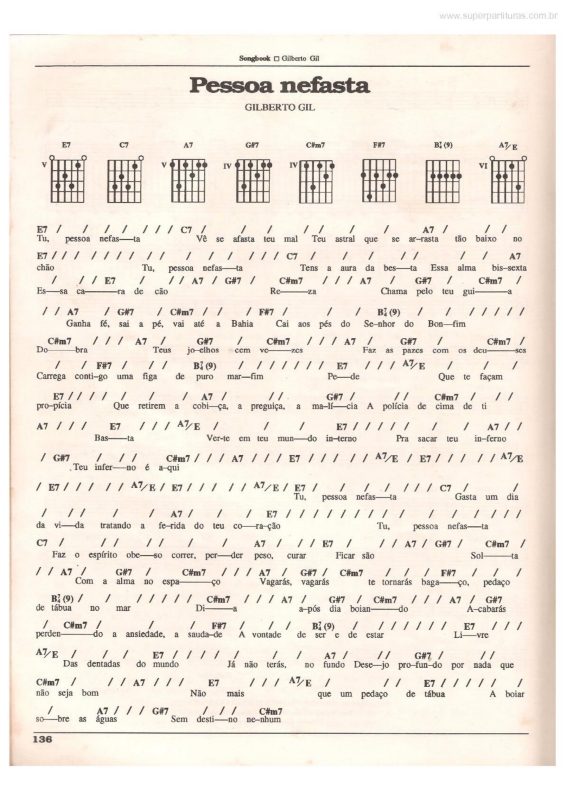 www.superpartituras.com.br
Songbook □ Gilberto Gil
Pessoa nefasta
GILBERTO GIL
E7 C7 A7 G#7 C#m7 F#7 B7/4(9) A7/E
V V IV IV VI
E7 / / / / / / / C7 / / / / / A7 / / /
Tu, pessoa nefas—ta Vê se afasta teu mal Teu astral que se ar-rasta tão baixo no
E7 / / / / / / / / / / / C7 / / / / / / A7
chão Tu, pessoa nefas—ta Tens a aura da bes—ta Essa alma bis-sexta
/ / / E7 / / / A7 / G#7 / C#m7 / / / A7 / G#7 / C#m7 /
Es—sa ca——ra de cão Re——za Chama pelo teu gui——a
/ / A7 / G#7 / C#m7 / / / F#7 / / / B7/4(9) / / / / / /
Ganha fé, sai a pé, vai até a Bahia Cai aos pés do Se-nhor do Bon—fim
C#m7 / / / A7 / G#7 / C#m7 / / / A7 / G#7 / C#m7 /
Do——bra Teus jo-elhos cem ve——zes Faz as pazes com os deu——ses
/ / F#7 / / / B7/4(9) / / / / / / / E7 / / / A7/E / / /
Carrega conti-go uma figa de puro mar—fim Pe—de Que te façam
E7 / / / / / / / A7 / / / G#7 / / / C#m7 / / /
pro-pícia Que retirem a cobi—ça, a preguiça, a ma-lí—cia A polícia de cima de ti
A7 / / / E7 / / / A7/E / / / E7 / / / / / / / A7 / /
Bas—ta Ver-te em teu mun—do in-terno Pra sacar teu in-ferno
/ G#7 / / / C#m7 / / / A7 / / / E7 / / / A7/E / E7 / / / / / A7/E
Teu infer—no é a-qui
/ E7 / / / / / A7/E / E7 / / / / / A7/E / E7 / / / / / / / C7 / /
Tu, pessoa nefas—ta Gasta um dia
/ / / / A7 / / / E7 / / / / / / / / / / / / / / /
da vi—da tratando a fe-rida do teu co—ração Tu, pessoa nefas—ta
C7 / / / / / / / A7 / / / E7 / / / A7 / G#7 / C#m7 /
Faz o espírito obe—so correr, per—der peso, curar Ficar são Sol——ta
/ / A7 / G#7 / C#m7 / / / A7 / G#7 / C#m7 / / / F#7 / / /
Com a alma no espa——ço Vagarás, vagarás te tornarás baga—ço, pedaço
B7/4(9) / / / / / / / C#m7 / / / A7 / G#7 / C#m7 / / / A7 / G#7
de tábua no mar Di——a a-pós dia boian——do A-cabarás
/ C#m7 / / / F#7 / / / B7/4(9) / / / / / / / E7 / / /
perden——do a ansiedade, a sauda-de A vontade de ser e de estar Li—vre
A7/E / / / E7 / / / / / / / A7 / / / G#7 / / /
Das dentadas do mundo Já não terás, no fundo Dese—jo pro-fun—do por nada que
C#m7 / / / A7 / / / E7 / / / A7/E / / / E7 / / / / / /
não seja bom Não mais que um pedaço de tábua A boiar
/ A7 / / / G#7 / / / C#m7
so—bre as águas Sem desti—no ne-nhum
136